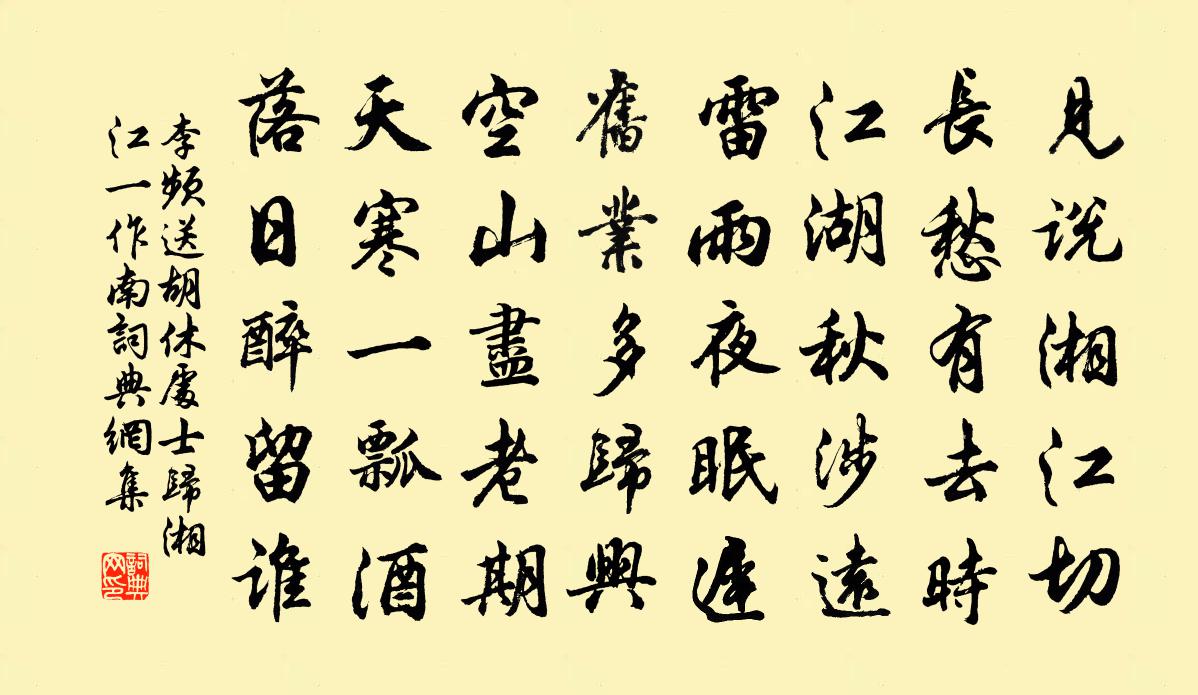 見説湘江切
長愁有去時
江湖秋涉遠
雷雨夜眠遲
舊業多歸興
空山盡老期
天寒一瓢酒
落日醉留誰
李頻送胡休處士歸湘
江一作南詞典網集
詞典
网印